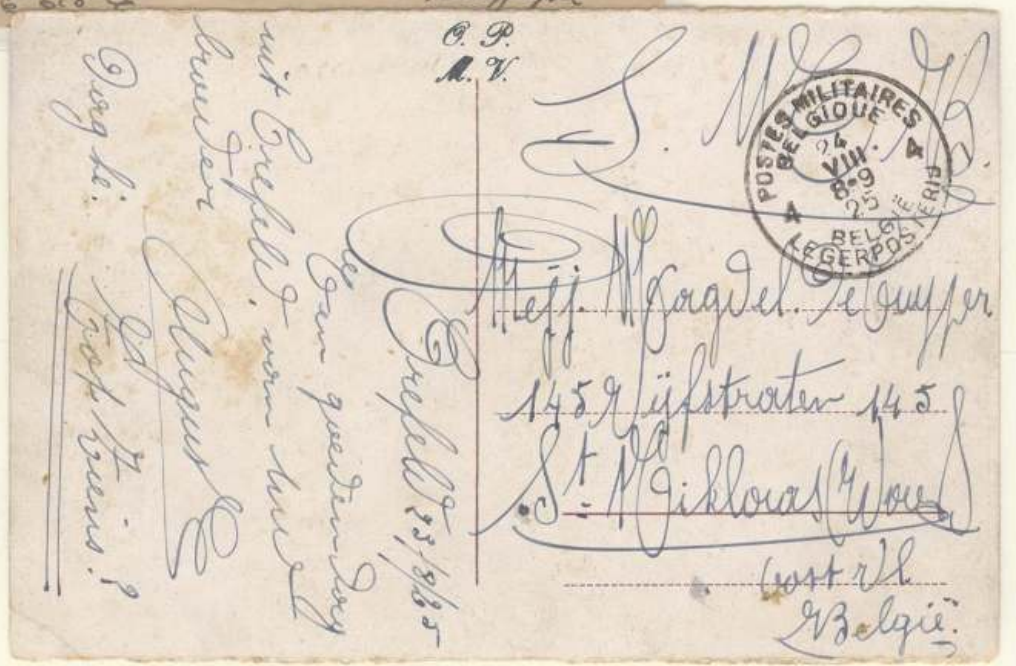 O. P.
M. V.
S. M.
POSTES MILITAIRES
BELGIQUE
24
VIII
8-9
25
BELGIE
LEGERPOSTERIJ
4 4
Mejj. Magdel. De Cuyper
145 Vijfstraten 145
St. Nikloras (Wors)
(oost Vl
België.
Crefeld 23/8/25
Een goeden dag
uit Crefeld, van uw
broeder
August
Dag he.
tot ziens.?